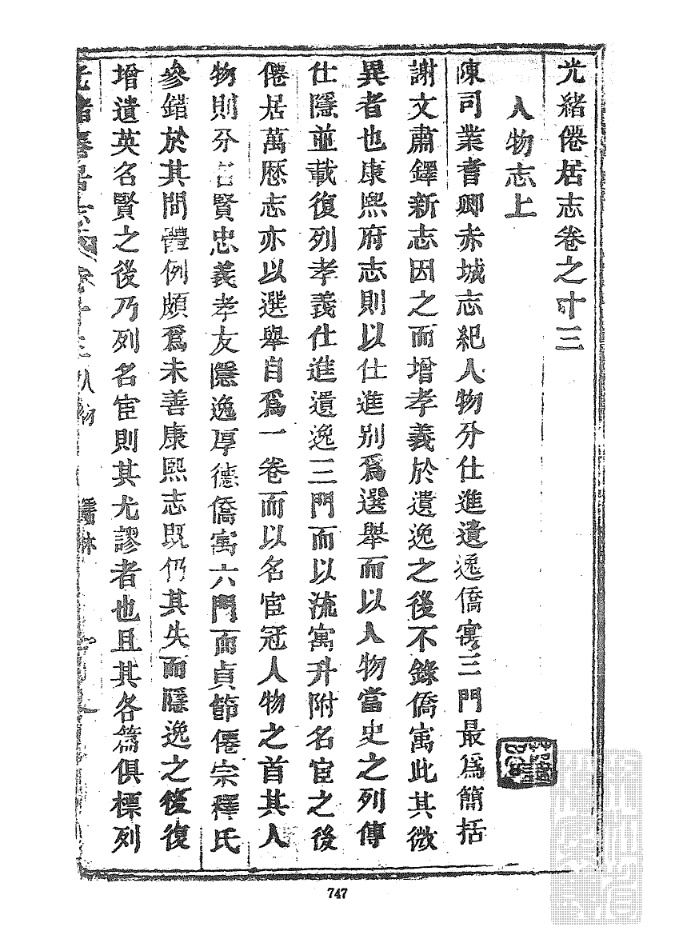 光緒僊居志卷之十三
人物志上
陳司業耆卿赤城志紀人物分仕進遺逸僑寓三門最爲簡括
謝文肅鐸新志因之而增孝義於遺逸之後不錄僑寓此其微
異者也康熙府志則以仕進別爲選舉而以人物當史之列傳
仕隱並載復列孝義仕進遺逸三門而以流寓升附名宦之後
僊居萬歷志亦以選舉自爲一卷而以名宦冠人物之首其人
物則分名賢忠義孝友隱逸厚德僑寓六門而貞節僊宗釋氏
參錯於其間體例頗爲未善康熙志既仍其失而隱逸之後復
增遺英名賢之後乃列名宦則其尤謬者也且其各篇俱標列
光緒僊居志 卷十三 人物 儒林
747